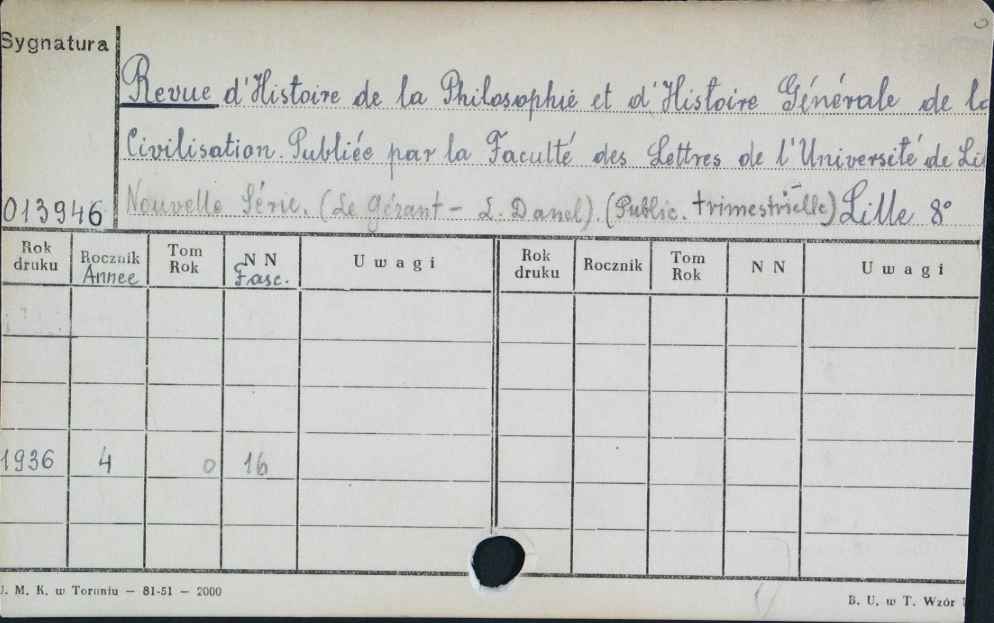 Sygnatura
Revue d'Histoire de la Philosophie et d'Histoire Générale de la
Civilisation. Publiée par la Faculté des Lettres de l'Université de Li
Nouvelle Série. (Le Gérant - L. Danel). (Public. trimestrielle) Lille 8°
013946
Rok druku Rocznik Annee Tom Rok N N Fasc. Uwagi Rok druku Rocznik Tom Rok N N Uwagi
1936 4 0 16
U. M. K. w Toruniu — 81-51 — 2000
B. U. w T. Wzór